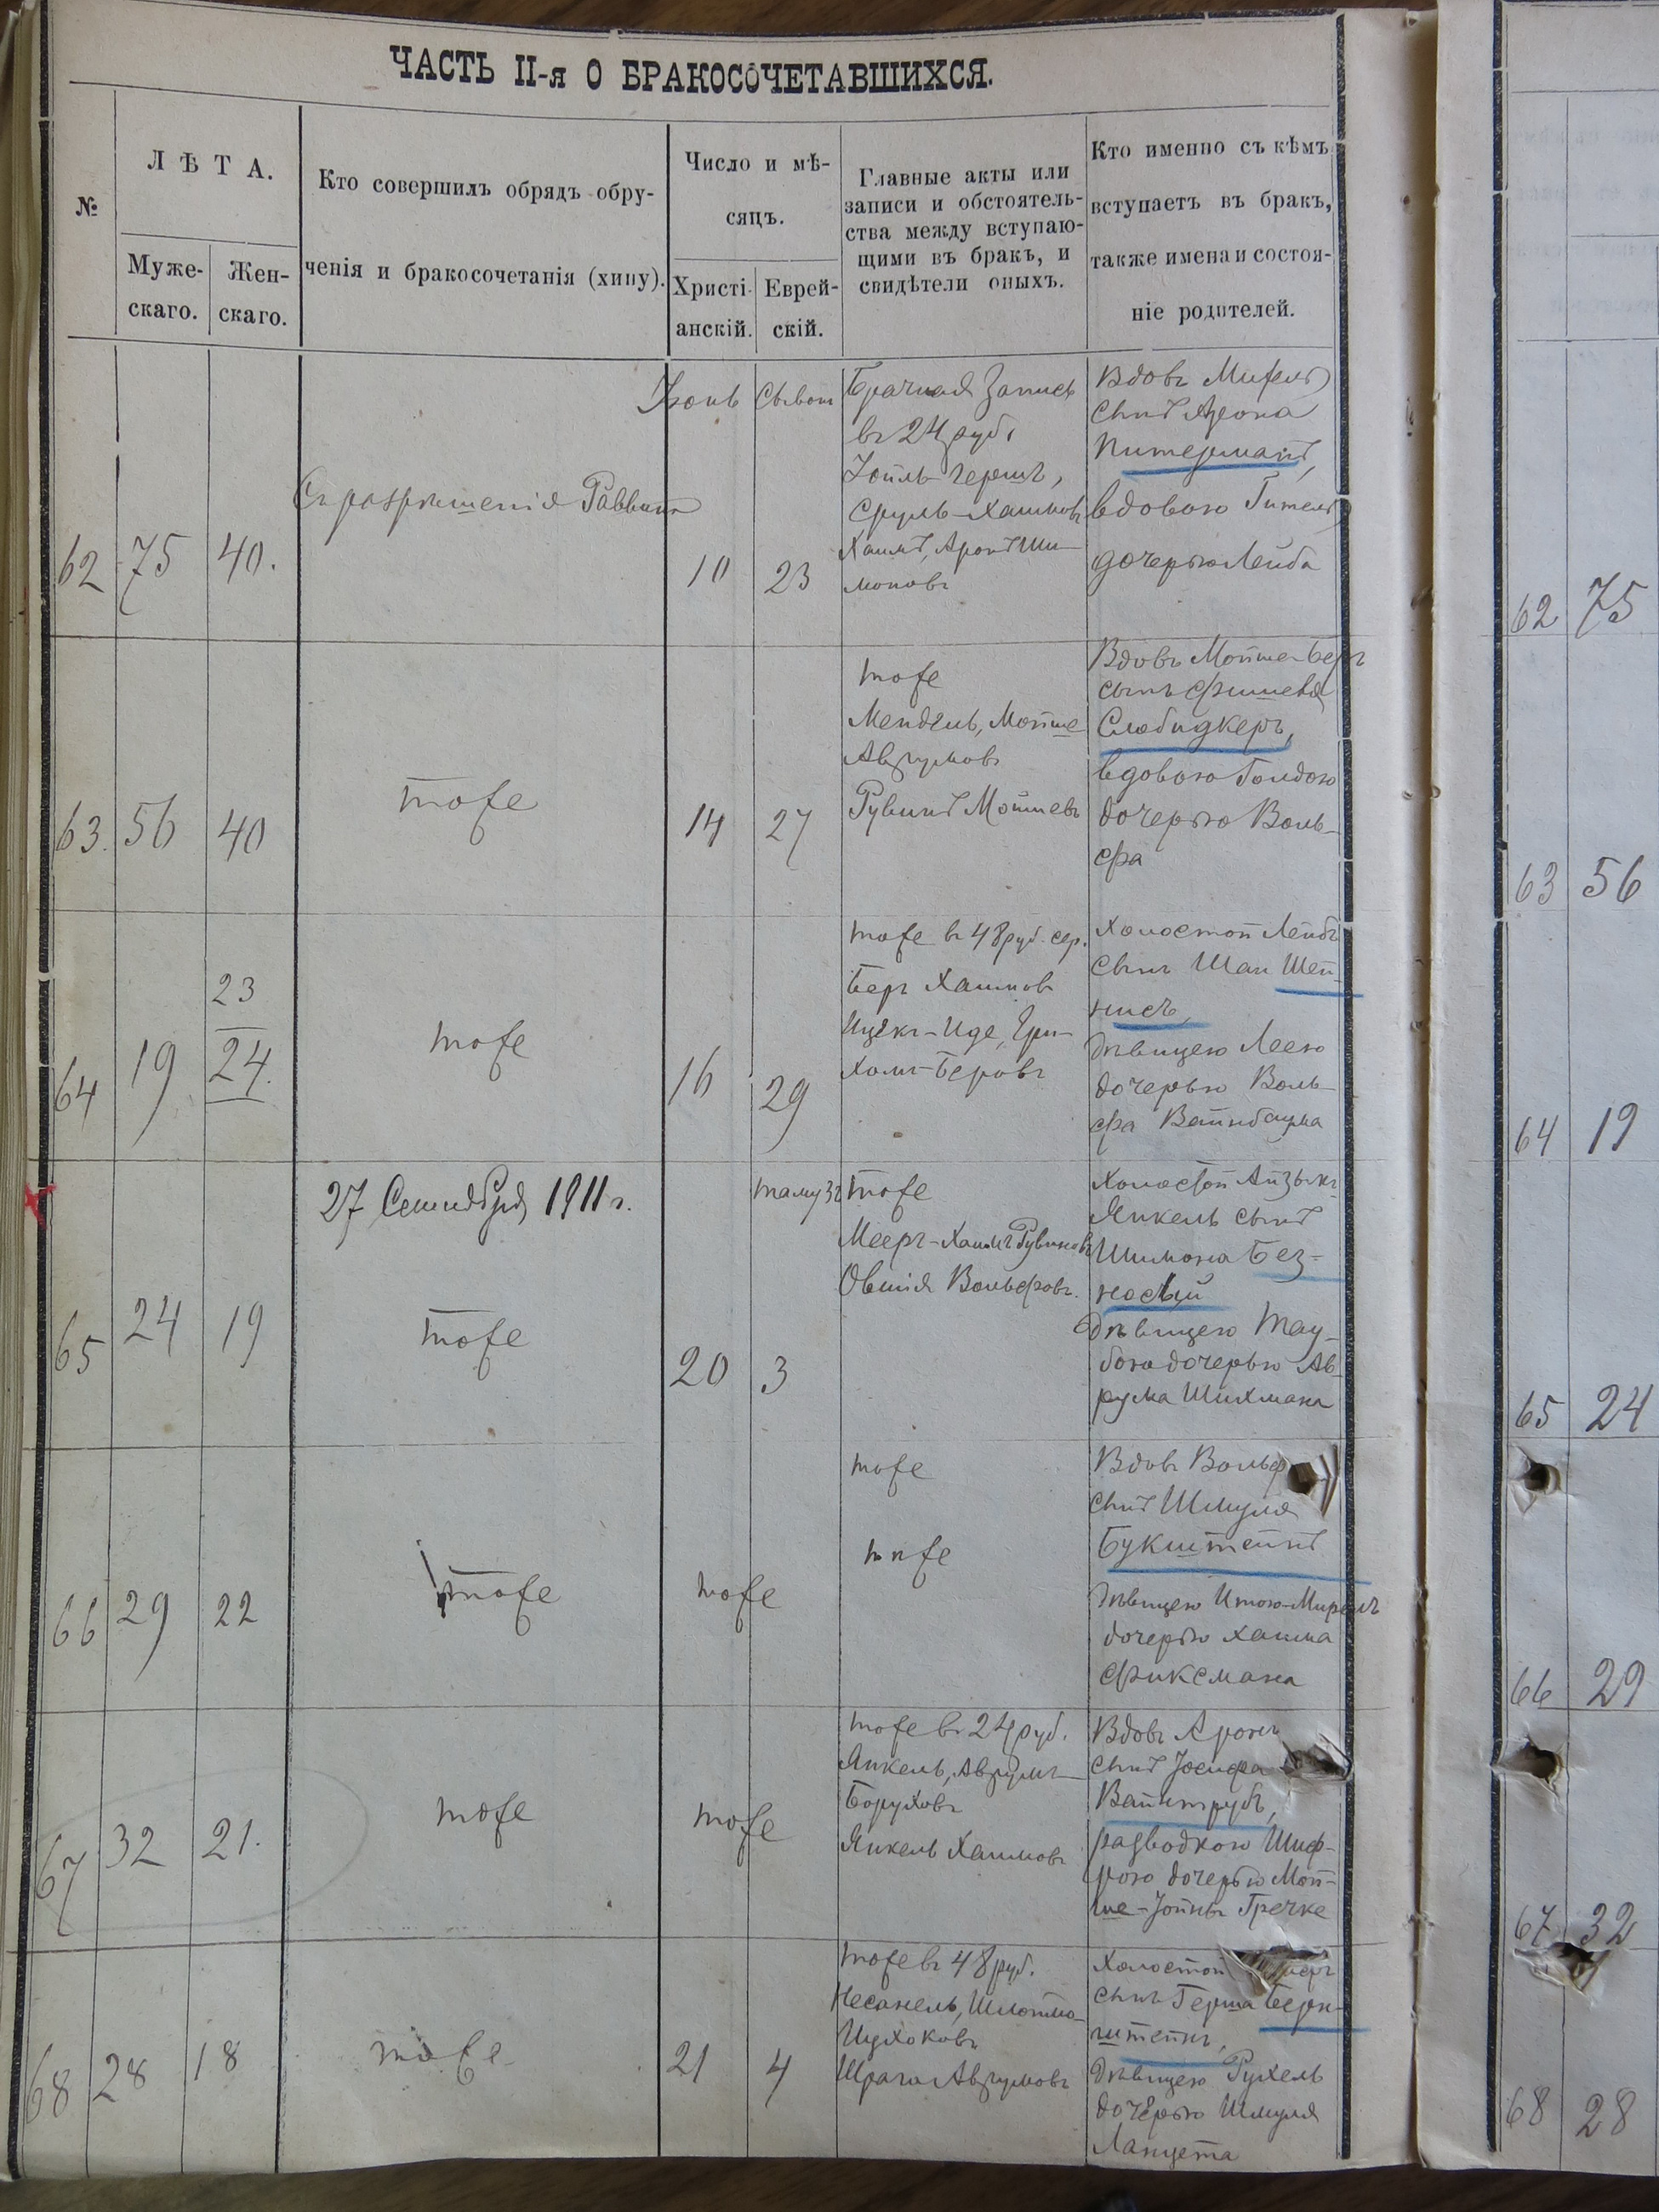 ЧАСТЬ II-я О БРАКОСОЧЕТАВШИХСЯ.
№
ЛѢТА.
Муже-
скаго.
Жен-
скаго.
Кто совершилъ обрядъ обру-
ченія и бракосочетанія (хипу).
Число и мѣ-
сяцъ.
Христі-
анскій.
Еврей-
скій.
Главные акты или
записи и обстоятель-
ства между вступаю-
щими въ бракъ, и
свидѣтели оныхъ.
Кто именно съ кѣмъ
вступаетъ въ бракъ,
также имена и состоя-
ніе родителей.
62
75
40.
Съ разрѣшенія Раввина
Іюнь
10
Сывон
23
Брачная Запись
въ 24 руб.
Іойль-Гершъ,
Сруль-Хаимовъ
Хаимъ, Аронъ Ши-
моновъ
Вдовъ
сынъ Арона
Питерманъ,
вдовою Гитель
дочерью Лейба
63.
56
40
тоже
14
27
тоже
Мендель, Мойше
Аврумовъ
Рувинъ Мойшевъ
Вдовъ Мойше-Беръ
сынъ Фишеля
Слободкеръ,
вдовою Голдою
дочерью Воль-
фа
64
19
23
24.
тоже
16
29
тоже въ 48 руб. сер.
Беръ Хаимовъ
Ицекъ-Иде,
Хаимъ-Беровъ
Холостой Лейбъ
сынъ Шаи Шей-
нисъ,
дѣвицею Леею
дочерью Воль-
фа Вайнбаума
27 Сентября 1911 г.
65
24
19
тоже
20
тамузъ
3
тоже
Мееръ-Хаимъ Рувиновъ
Овшія Вольфовъ.
Холостой Айзыкъ
Янкель сынъ
Шимона Без-
носый
дѣвицею Тау-
бою дочерью Ав-
рума Шихмана
66
29
22
тоже
тоже
тоже
тоже
Вдовъ Вольф
сынъ Шмуля
Букштейнъ
дѣвицею Итою-Мирель
дочерью Хаима
Фиксмана
67
32
21.
тоже
тоже
тоже въ 24 руб.
Янкель, Аврумъ-
Боруховъ
Янкель Хаимовъ
Вдовъ Аронъ
сынъ Іосифа
Вайнтрубъ,
разводкою Шиф-
рою дочерью Мой-
ше-Іойны Гречке
68
28
18
тоже
21
4
тоже въ 48 руб.
Несанель, Шлойма-
Ицхоковъ
Шрага Аврумовъ
Холостой
сынъ Герша Берн-
штейнъ,
дѣвицею Рухель
дочерью Шмуля
Ланцета
62 75
63 56
64 19
65 24
66 29
67 32
68 28